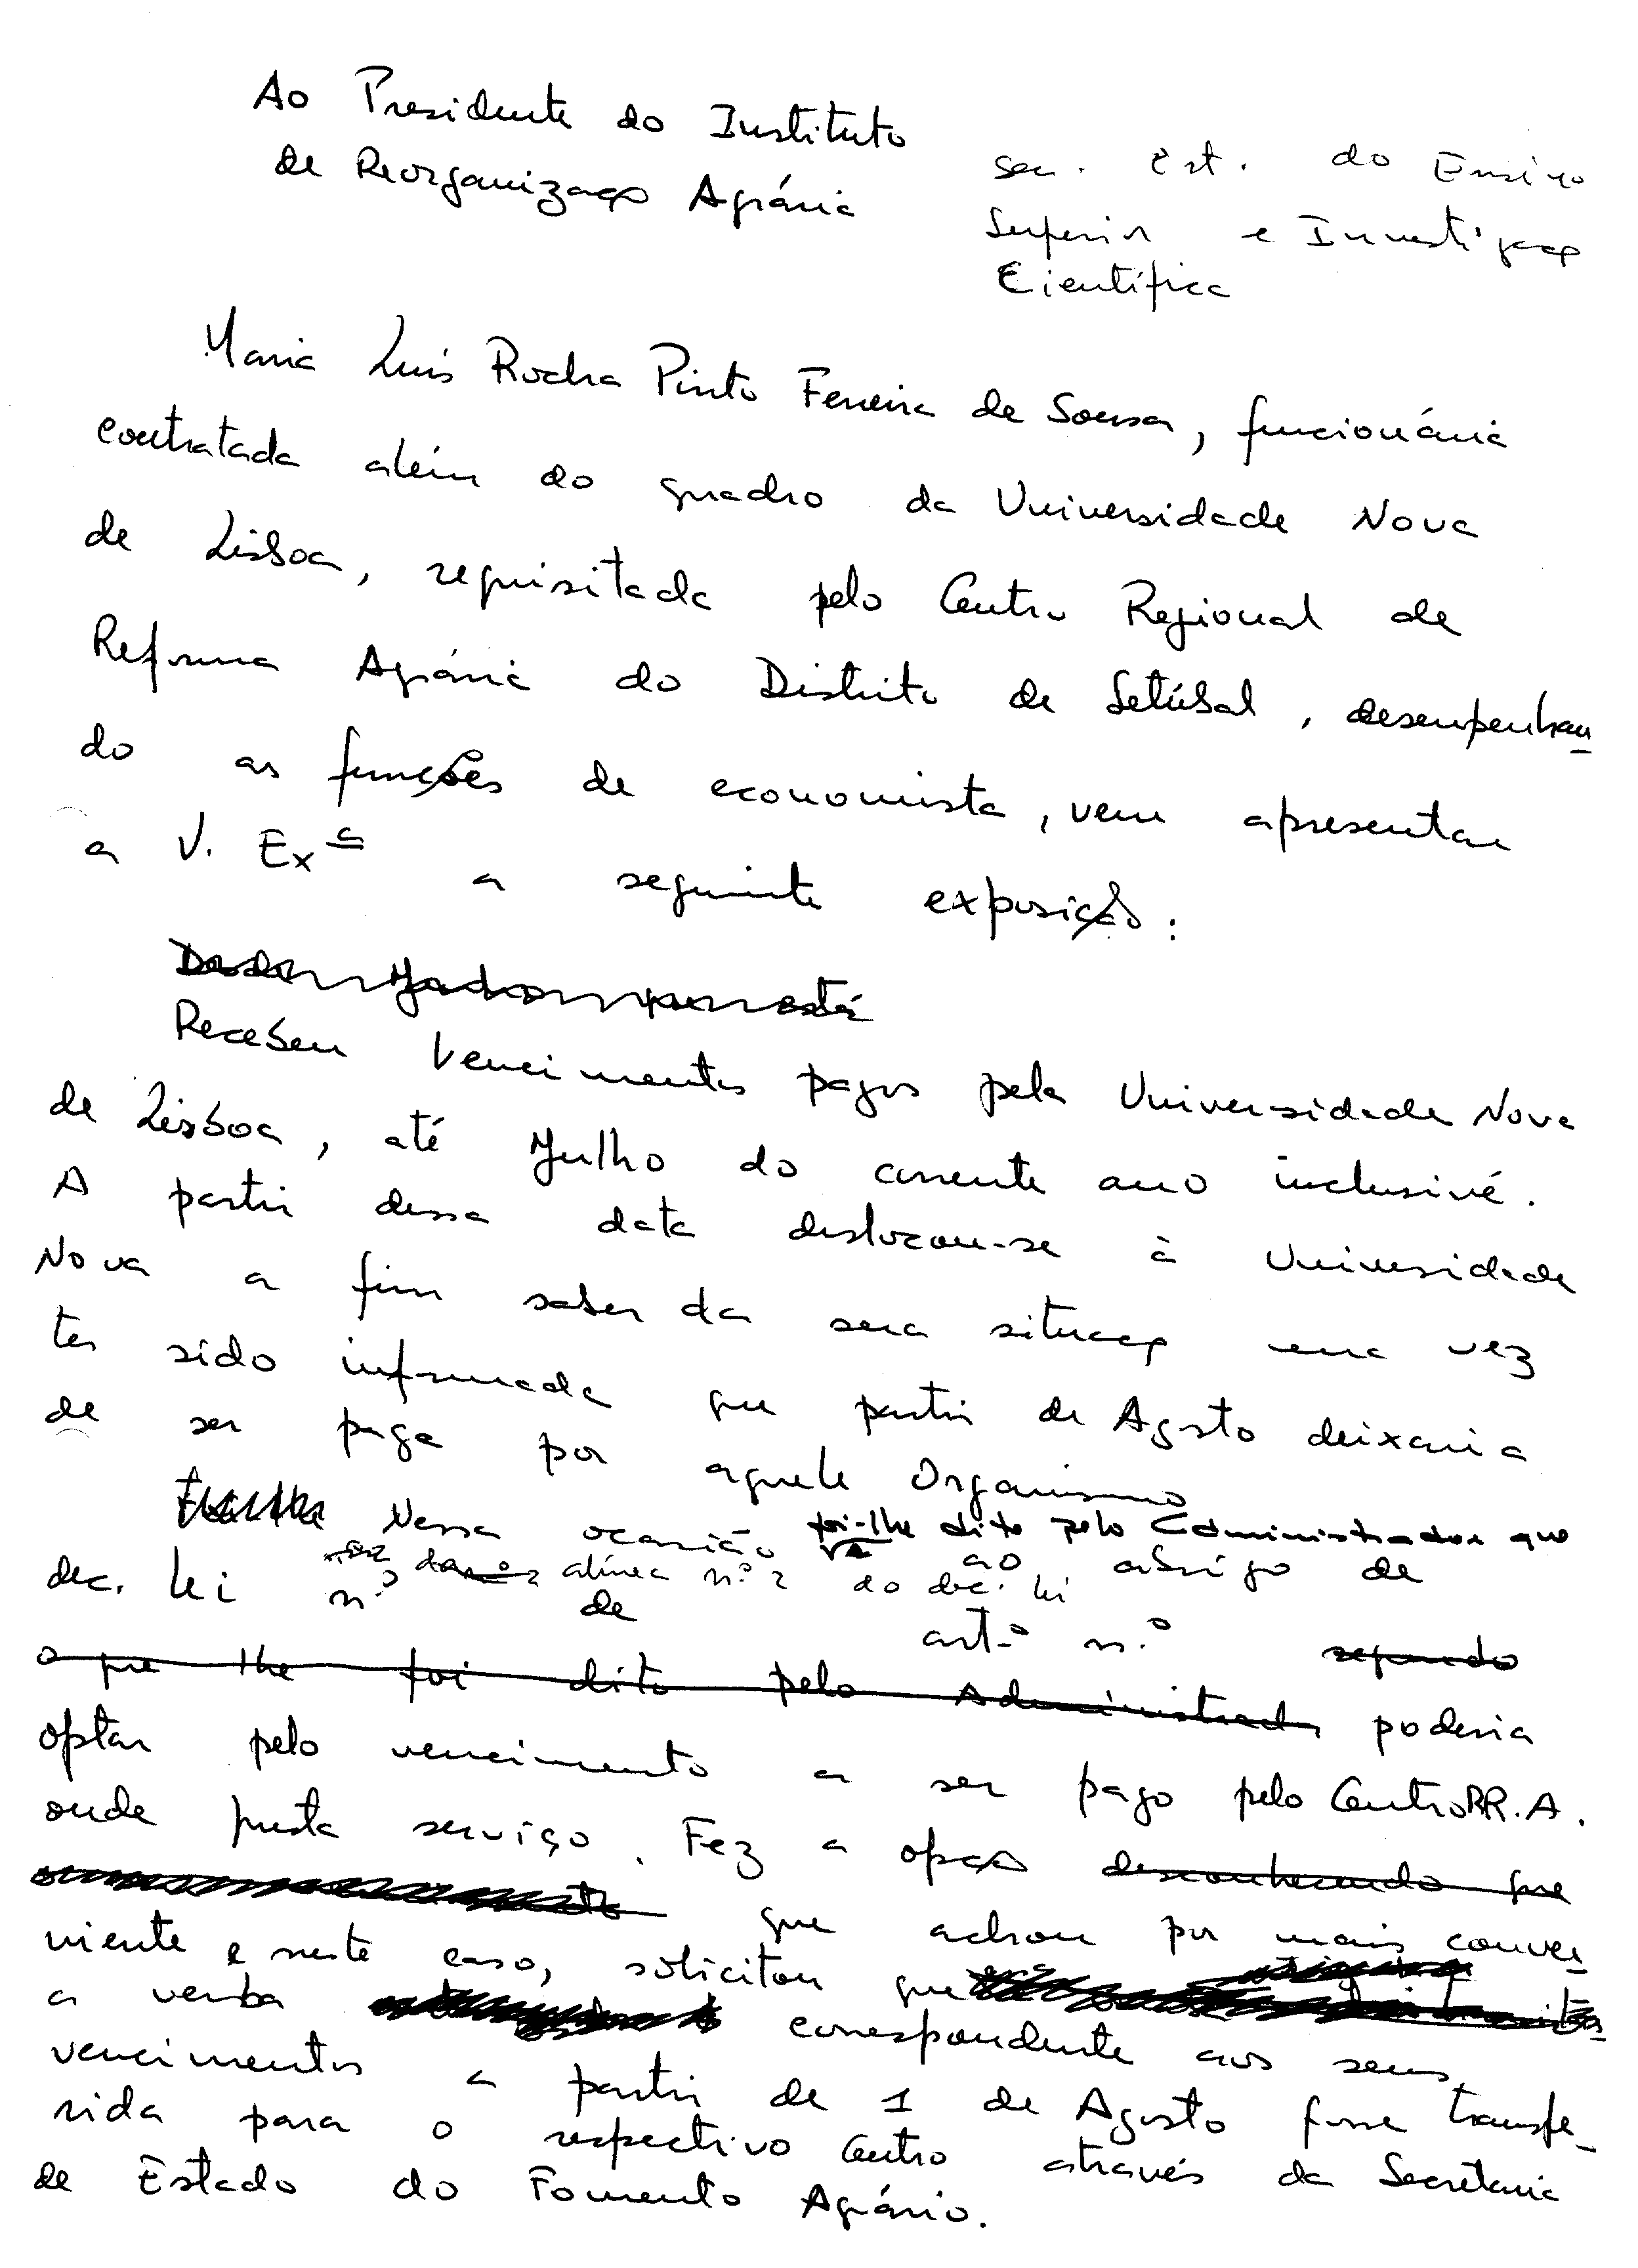 Ao Presidente do Instituto
de Reorganização Agrária
Sec. Est. do Ensino
Superior e Investigação
Científica
Maria Luís Rocha Pinto Ferreira de Sousa, funcionária
contratada além do quadro da Universidade Nova
de Lisboa, requisitada pelo Centro Regional de
Reforma Agrária do Distrito de Setúbal, desempenhan_
do as funções de economista, vem apresentar
a V. Exª a seguinte exposição:
está
Recebeu vencimentos pagos pela Universidade Nova
de Lisboa, até Julho do corrente ano inclusivé.
A partir dessa data deslocou-se à Universidade
Nova a fim saber da sua situação uma vez
ter sido informada que partir de Agosto deixaria
de ser paga por aquele Organismo
Nessa ocasião foi-lhe dito pelo Administrador que
alínea n.º 2 do dec. lei ao abrigo de
dec. lei n.º de art.º n.º segundo
o que lhe foi dito pelo Administrador poderia
optar pelo vencimento a ser pago pelo Centro R.R.A.
onde presta serviço. Fez a opção desconhecendo que
que achou por mais conve_
niente e neste caso, solicitou que
a verba correspondente aos seus
vencimentos a partir de 1 de Agosto fosse transfe_
rida para o respectivo Centro através da Secretaria
de Estado do Fomento Agrário.